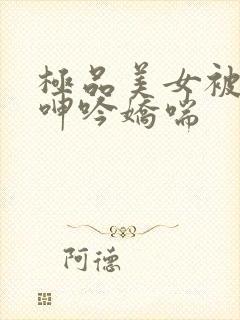 極品美女被
呻吟嬌喘
阿德